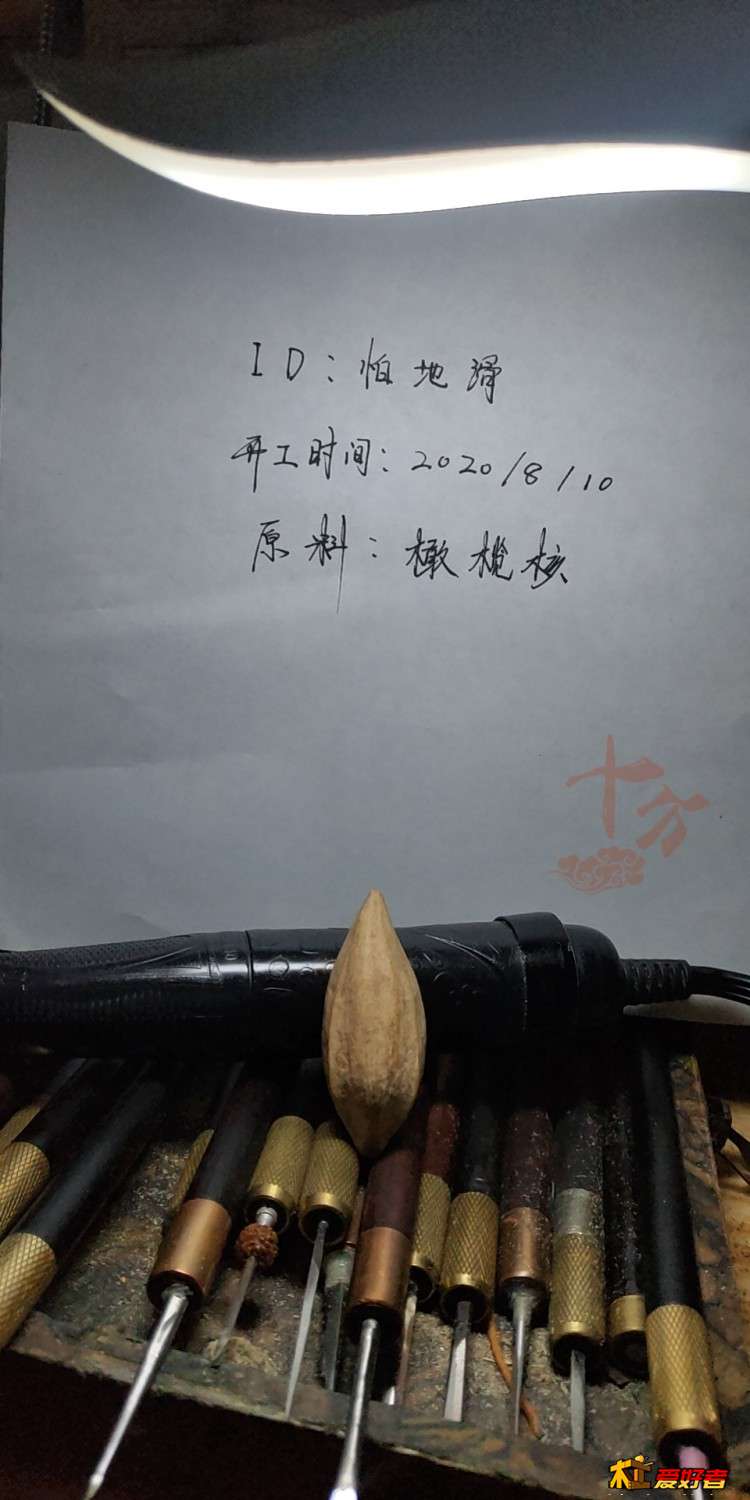 ID:怕地滑
开工时间:2020/8/10
原料:橄榄核
十分
木工爱好者